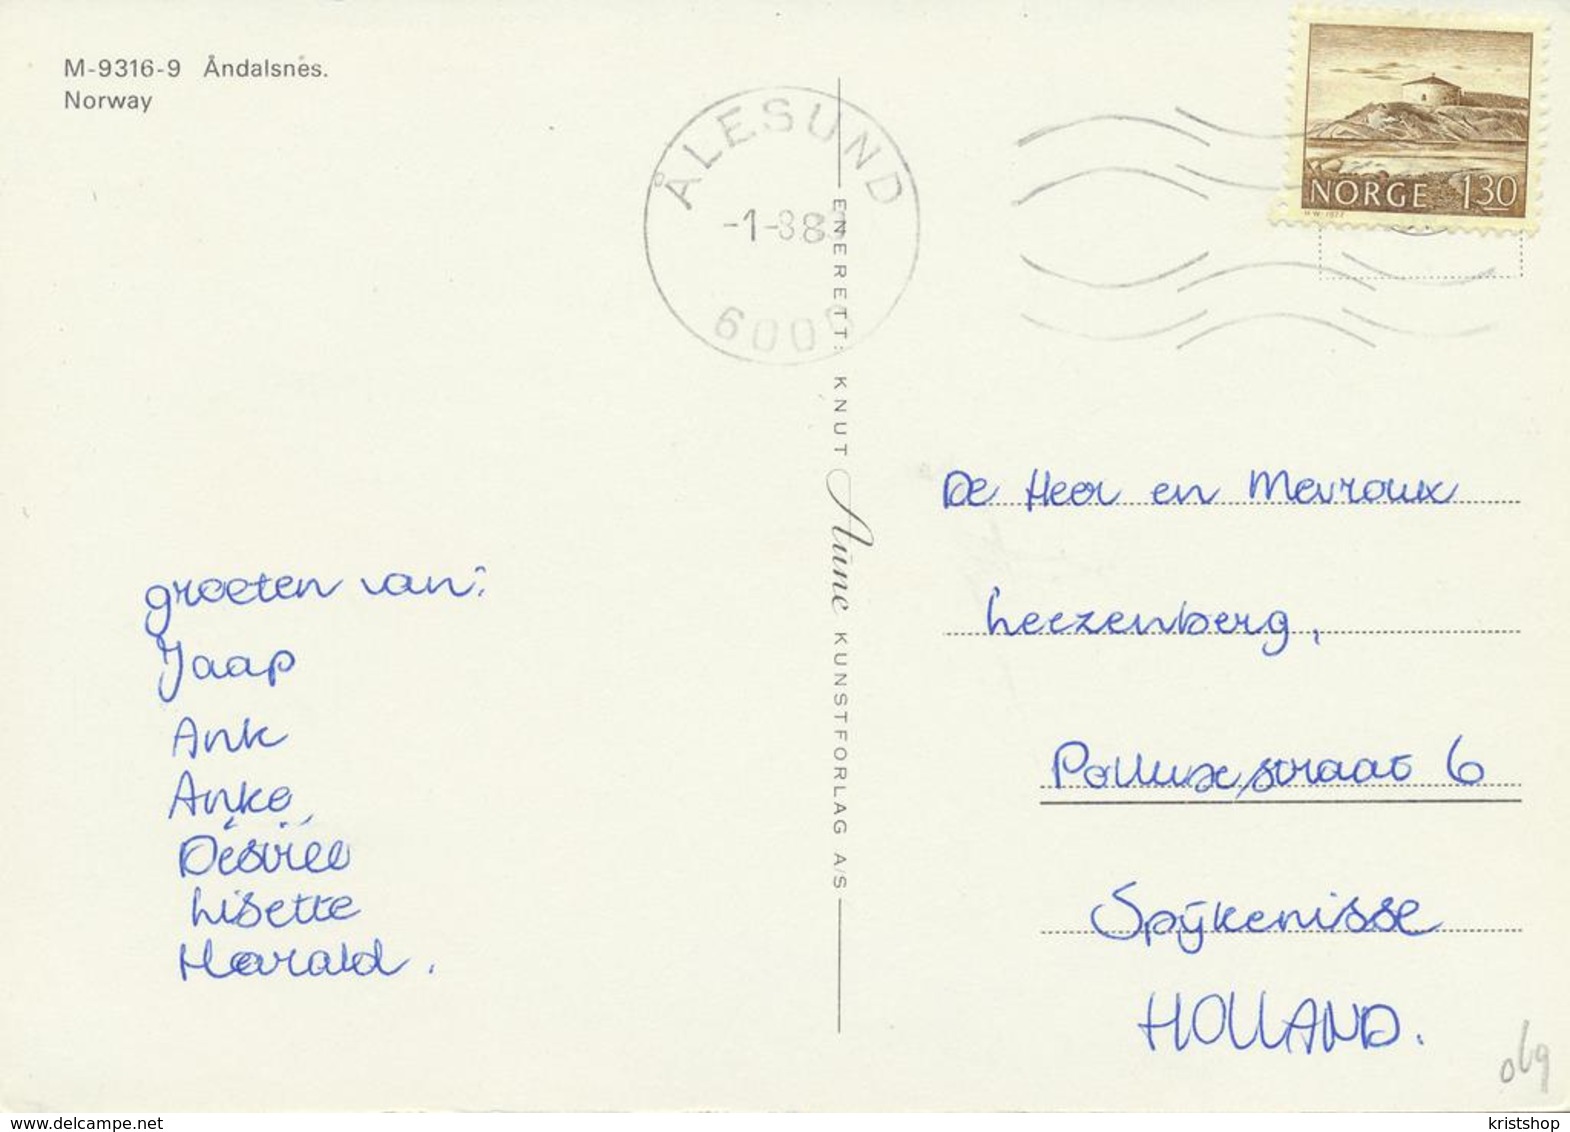 M-9316-9 Åndalsnes.
Norway
ÅLESUND
-1-8.8
6000
NORGE 130
H.W. 1977
ENERETT: KNUT Aune KUNSTFORLAG A/S
groeten van:
Jaap
Ank
Anke
Désirée
Lisette
Harald.
De Heer en Mevrouw
Leezenberg,
Polluxstraat 6
Spijkenisse
HOLLAND.
delcampe.net
kristshop